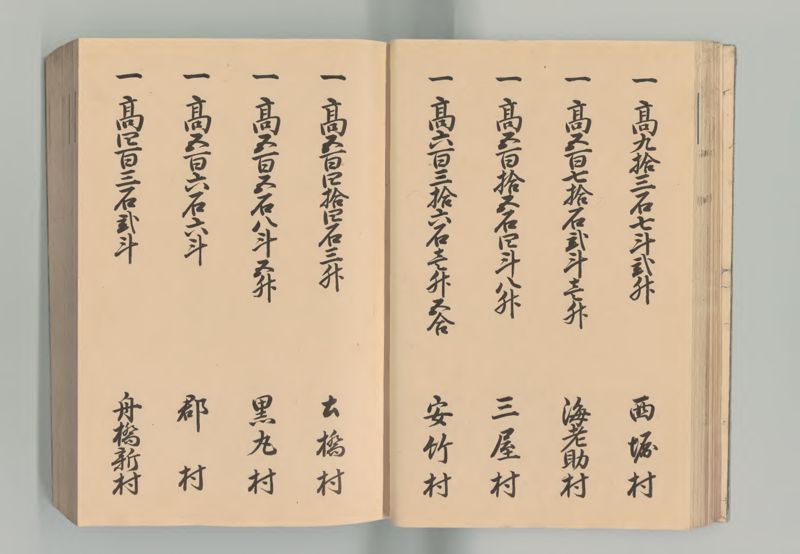 一高九拾三石七斗弐升 西堀村
一高五百七拾石弐斗壱升 海老助村
一高五百拾五石四斗八升 三屋村
一高六百三拾六石壱升五合 安竹村
一高五百四拾四石三升 土橋村
一高五百五石八斗五升 黒丸村
一高五百六石六斗 郡村
一高四百三石弐斗 舟橋新村